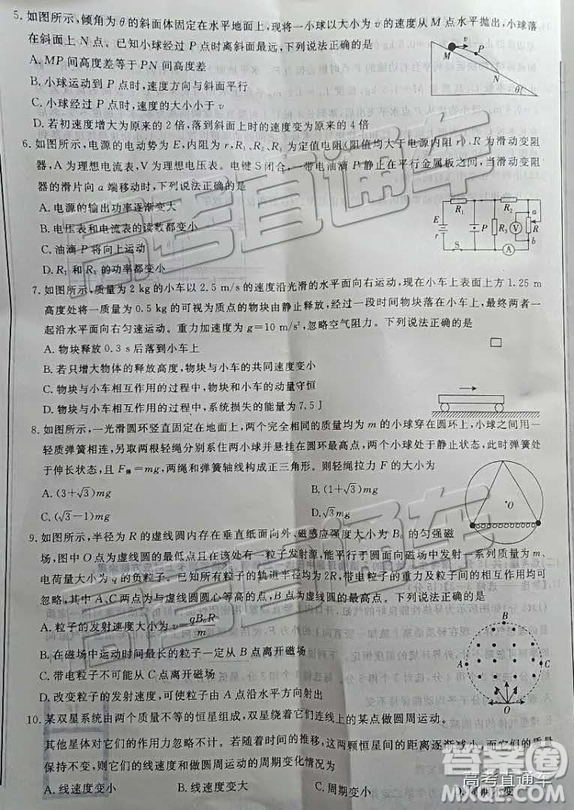 5. 如图所示,倾角为θ的斜面体固定在水平地面上,现将一小球以大小为v的速度从M点水平抛出,小球落
在斜面上N点。已知小球经过P点时离斜面最远,下列说法正确的是
A. MP间高度差等于PN间高度差
B. 小球运动到P点时,速度方向与斜面平行
C. 小球运动到P点时,速度的大小小于v
D. 若初速度增大为原来的2倍,落到斜面上时的速度变为原来的4倍
M
v
P
N
θ
6. 如图所示,电源的电动势为E,内阻为r,R₁、R₂为定值电阻(阻值均大于电源内阻r),R为滑动变阻
器,A为理想电流表,V为理想电压表。电键S闭合,一带电油滴P静止在平行金属板之间,当滑动变阻
器的滑片向a端移动时,下列说法正确的是
A. 电源的输出功率逐渐变大
B. 电压表和电流表的读数都变小
C. 油滴P将向上运动
D. R₁和R₂的功率都变小
7. 如图所示,质量为2 kg的小车以2.5 m/s的速度沿光滑的水平面向右运动,现在小车上表面上方1.25 m
高度处将一质量为0.5 kg的可视为质点的物块由静止释放,经过一段时间物块落在小车上,最终两者一
起沿水平方向匀速运动。重力加速度为g=10 m/s²,忽略空气阻力。下列说法正确的是
A. 物块释放0.3 s后落到小车上
B. 若只增大物体的释放高度,物块与小车的共同速度变小
C. 物块与小车相互作用的过程中,物块和小车的动量守恒
D. 物块与小车相互作用的过程中,系统损失的能量为7.5 J
8. 如图所示,一光滑圆环竖直固定在地面上,两个完全相同的质量均为m的小球穿在圆环上,小球之间用一
轻质弹簧相连,另用两根轻绳分别系住两小球并悬挂在圆环最高点,两个小球处于静止状态,此时弹簧处
于伸长状态,且F弹=mg,两绳和弹簧轴线构成正三角形。则轻绳拉力F的大小为
A. (3+√3)mg
B. (1+√3)mg
C. (√3-1)mg
D. √3mg
O
9. 如图所示,半径为R的虚线圆内存在垂直纸面向外、磁感应强度大小为B₀的匀强磁
场,图中O点为虚线圆的最低点且在该处有一粒子发射源,能平行于圆面向磁场中发射一系列质量为m、
电荷量大小为q的负粒子。已知所有粒子的轨迹半径均为2R,带电粒子的重力及粒子间的相互作用均可
忽略。其中A、C两点为与虚线圆圆心等高的点,B为虚线圆的最高点。下列说法正确的是
A. 粒子的发射速度大小为v=qB₀R/m
B. 在磁场中运动时间最长的粒子由B点离开磁场
C. 带电粒子不可能从A点离开磁场
D. 改变粒子的发射速度,可使粒子由A点沿水平方向射出
B
A
C
O
10. 某双星系统由两个质量不等的恒星组成,双星绕着它们连线上的某点做圆周运动。
其他星体对它们的作用力忽略不计。若随着时间的推移,这两颗恒星间的距离逐渐减小,而它们的质量
保持不变,则它们的相关物理量变化正确的是
A. 线速度变小
B. 线速度变大
C. 周期变小
高考直通车
高考直通车
高考直通车